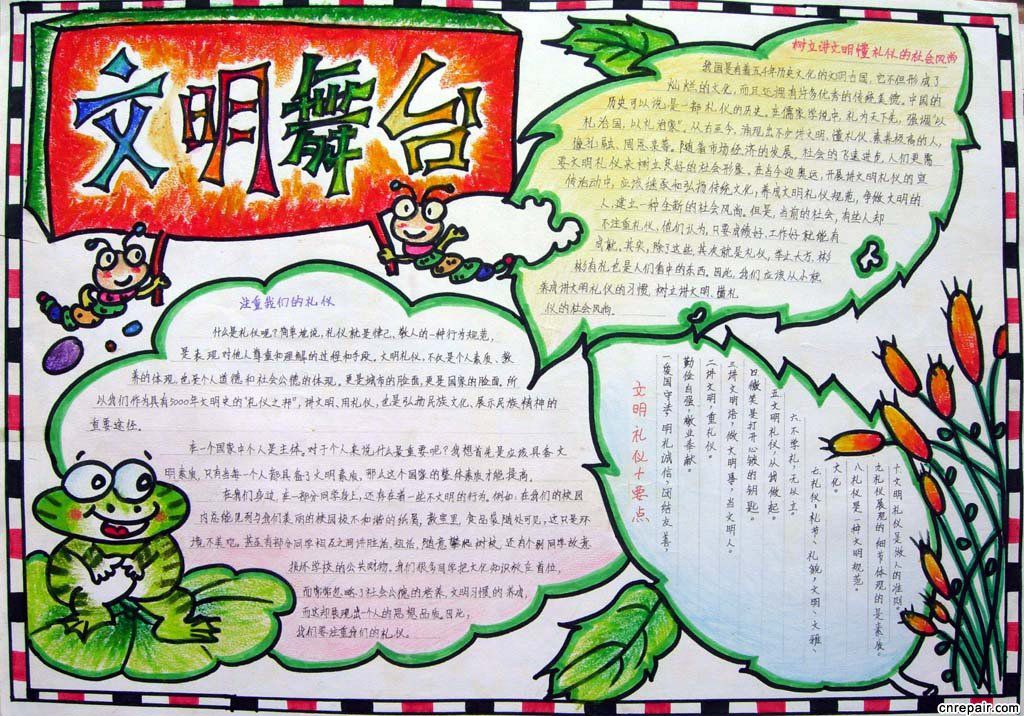 文明舞台
树立讲文明懂礼仪的社会风尚
我国是有着五千年历史文化的文明古国,它不但形成了
灿烂的文化,而且还拥有许多优秀的传统美德。中国的
历史可以说是一部礼仪的历史。在儒家学说中,礼为天下先,强调“以
礼治国,以礼治家”。从古至今,涌现出不少讲文明、懂礼仪、素养极高的人,
像孔融、周恩来等。随着市场经济的发展,社会的飞速进步,人们更需
要文明礼仪来树立良好的社会形象。在古今迎奥运,开展讲文明礼仪的宣
传活动中,应该继承和弘扬传统文化,养成文明礼仪规范,争做文明的
人,建立一种全新的社会风尚。但是,当前的社会,有些人却
不注重礼仪,他们认为,只要成绩好、工作好就能有
成就。其实,除了这些,其次就是礼仪,举止大方、彬
彬有礼也是人们看中的东西,因此,我们应该从小就
养成讲文明礼仪的习惯,树立讲文明、懂礼
仪的社会风尚。
注重我们的礼仪
什么是礼仪呢?简单地说,礼仪就是律己、敬人的一种行为规范,
是表现对他人尊重和理解的过程和手段。文明礼仪,不仅是个人素质、教
养的体现,也是个人道德和社会公德的体现。更是城市的脸面,更是国家的脸面。所
以我们作为具有5000年文明史的“礼仪之邦”,讲文明、用礼仪,也是弘扬民族文化、展示民族精神的
重要途径。
在一个国家中个人是主体。对于个人来说,什么最重要呢?我想首先是应该具备文
明素质,只有当每一个人都具备了文明素质,那么这个国家的整体素质才能提高。
在我们身边,在一部分同学身上,还存在着一些不文明的行为。例如:在我们的校园
内总能见到与我们美丽的校园极不和谐的纸屑,教室里,食品袋随处可见,这只是环
境不美吧。甚至有部分同学相互之间讲脏话、粗话,随意攀爬树枝,还有个别同学故意
损坏学校的公共财物。我们很多同学把文化知识放在首位,
而常常忽略了社会公德的培养,文明习惯的养成,
而这却展现出一个人的思想品质,因此,
我们要注重我们的礼仪。
文明礼仪十要点
一爱国守法,明礼诚信,团结友善,
勤俭自强,敬业奉献。
二讲文明,重礼仪。
三讲文明语,做文明事,当文明人。
四微笑是打开心锁的钥匙。
五文明礼仪,从我做起。
六不学礼,无以立。
七礼仪,礼节、礼貌,文明、文雅、
文化。
八礼仪是一种文明规范。
九礼仪展现的细节体现的是素质。
十文明礼仪是做人的准则。
cnrepair.com